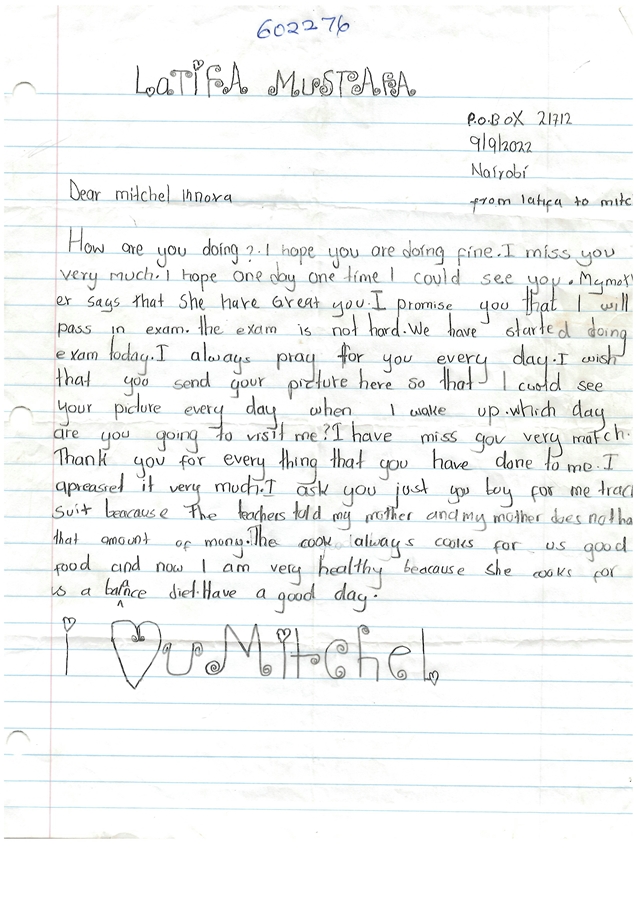 602276
LaTiFA MuSTAFA
P.O.BOX 21712
9/9/2022
Nairobi
Dear mitchel innova
from latifa to mitc
How are you doing?.I hope you are doing fine.I miss you
very much.I hope one day one time I could see you.My mot
er says that she have Great you.I promise you that I will
pass in exam.the exam is not hard.We have started doing
exam today.I always pray for you every day.I wish
that you send your picture here so that I could see
your picture every day when I wake up.which day
are you going to visit me?I have miss you very match.
Thank you for every thing that you have done to me.I
apreasret it very much.I ask you just you boy for me trac
suit beacause The teachers told my mother and my mother does not ha
that amount of mony.The cook always cooks for us good
food and now I am very healthy beacause she cooks for
is a balnce diet.Have a good day.
i ♡u Mitchel